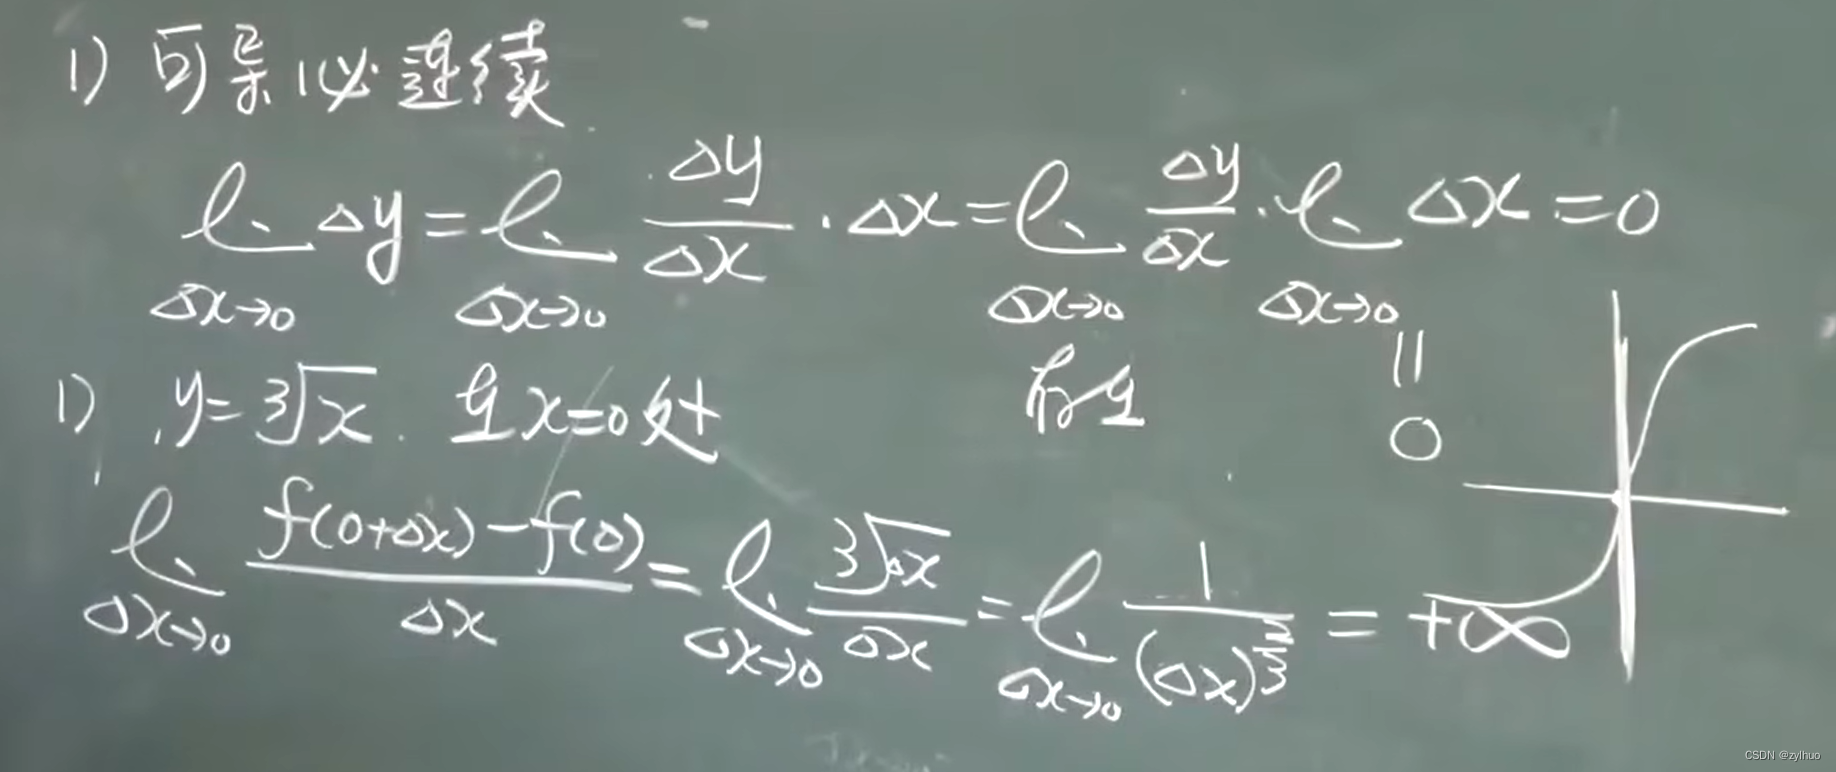 1) 可导必连续
lim Δx→0 Δy = lim Δx→0 Δy/Δx · Δx = lim Δx→0 Δy/Δx · lim Δx→0 Δx = 0
存在
=
0
1) y = ³√x . 在 x=0 处
lim Δx→0 (f(0+Δx) − f(0))/Δx = lim Δx→0 ³√Δx/Δx = lim Δx→0 1/(Δx)^(2/3) = +∞
CSDN @zylhuo